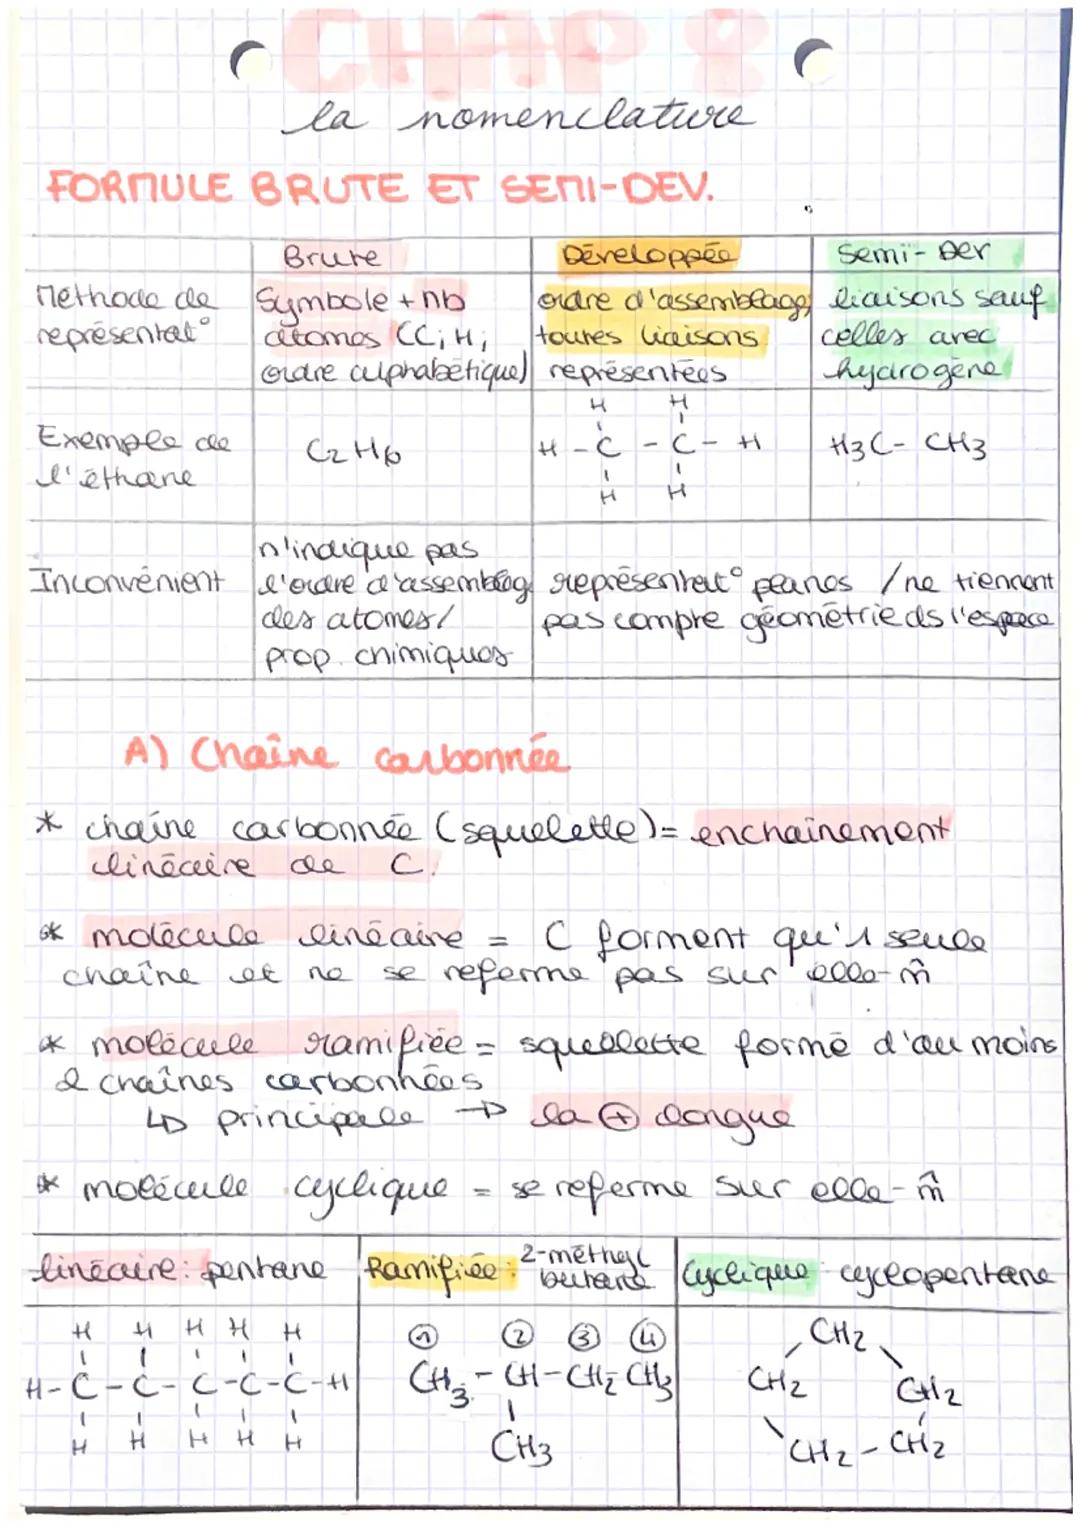 CHAP 8
la nomenclature
FORMULE BRUTE ET SEMI-DEV.
Brute Développée Semi-Dev
Méthode de représentat° Symbole + nb atomes (C; H; ordre alphabétique) ordre d'assemblage, toutes liaisons représentées liaisons sauf celles avec hydrogène
Exemple de l'éthane C2H6
H H
H - C - C - H
H H
H3C - CH3
Inconvénient n'indique pas l'ordre d'assemblag des atomes / prop. chimiques représentat° planes / ne tiennent pas compte géométrie ds l'espace
A) Chaîne carbonnée
* chaîne carbonnée (squelette) = enchaînement
linéaire de C.
* molécule linéaire = C forment qu'1 seule
chaîne et ne se referme pas sur elle-m̂
* molécule ramifiée = squelette formé d'au moins
2 chaînes carbonnées
↳ principale → la ⊕ longue
* molécule cyclique = se referme sur elle-m̂
linéaire : pentane Ramifiée : 2-méthyl butane Cyclique : cyclopentane
H H H H H
H - C - C - C - C - C - H
H H H H H
① ② ③ ④
CH3 - CH - CH2 CH3
CH3
CH2
CH2 CH2
CH2 - CH2